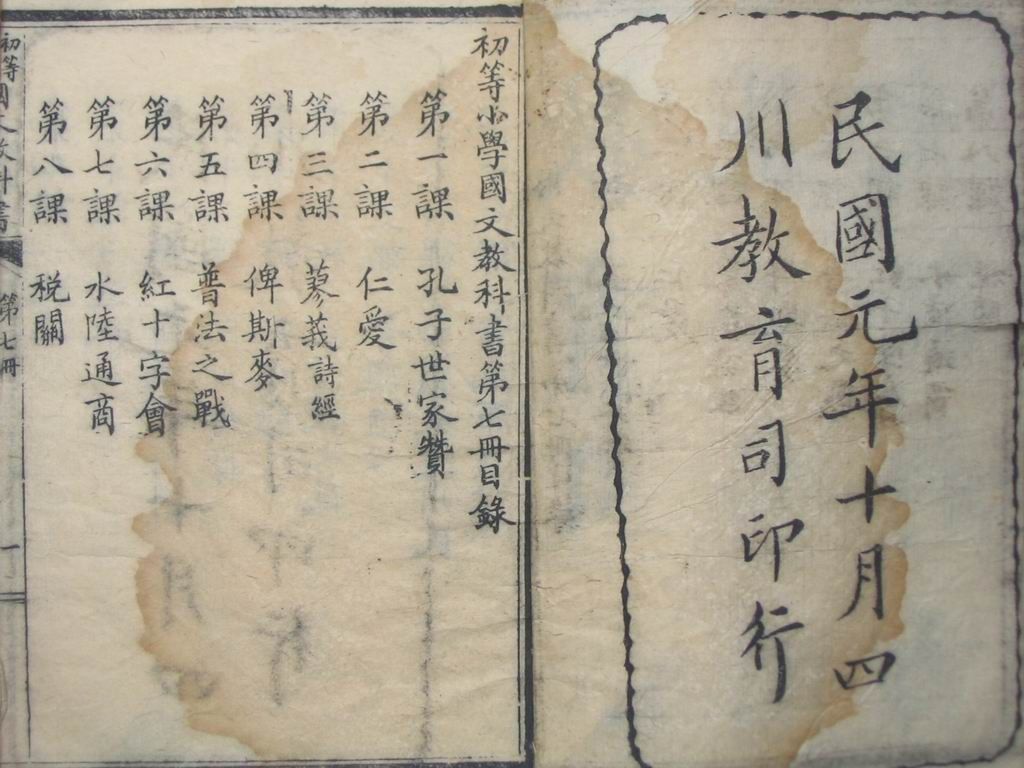 民國元年十月四
川教育司印行
初等小學國文教科書第七冊目錄
第一課 孔子世家贊
第二課 仁愛
第三課 蓼莪詩經
第四課 俾斯麥
第五課 普法之戰
第六課 紅十字會
第七課 水陸通商
第八課 税關
初等國文教科書 第七冊 一